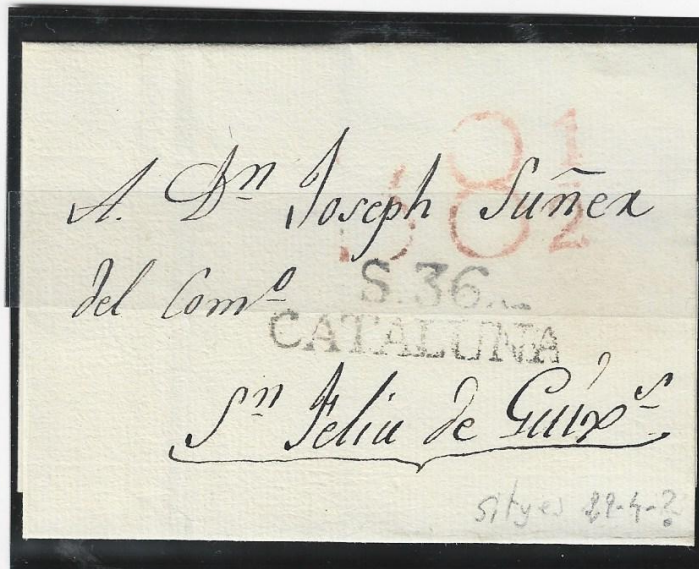 8 1/2
A. Dn Joseph Suñer
del Como
S.36.
CATALUNA
Sn Feliu de Guíxs
Sitges 29-4-?